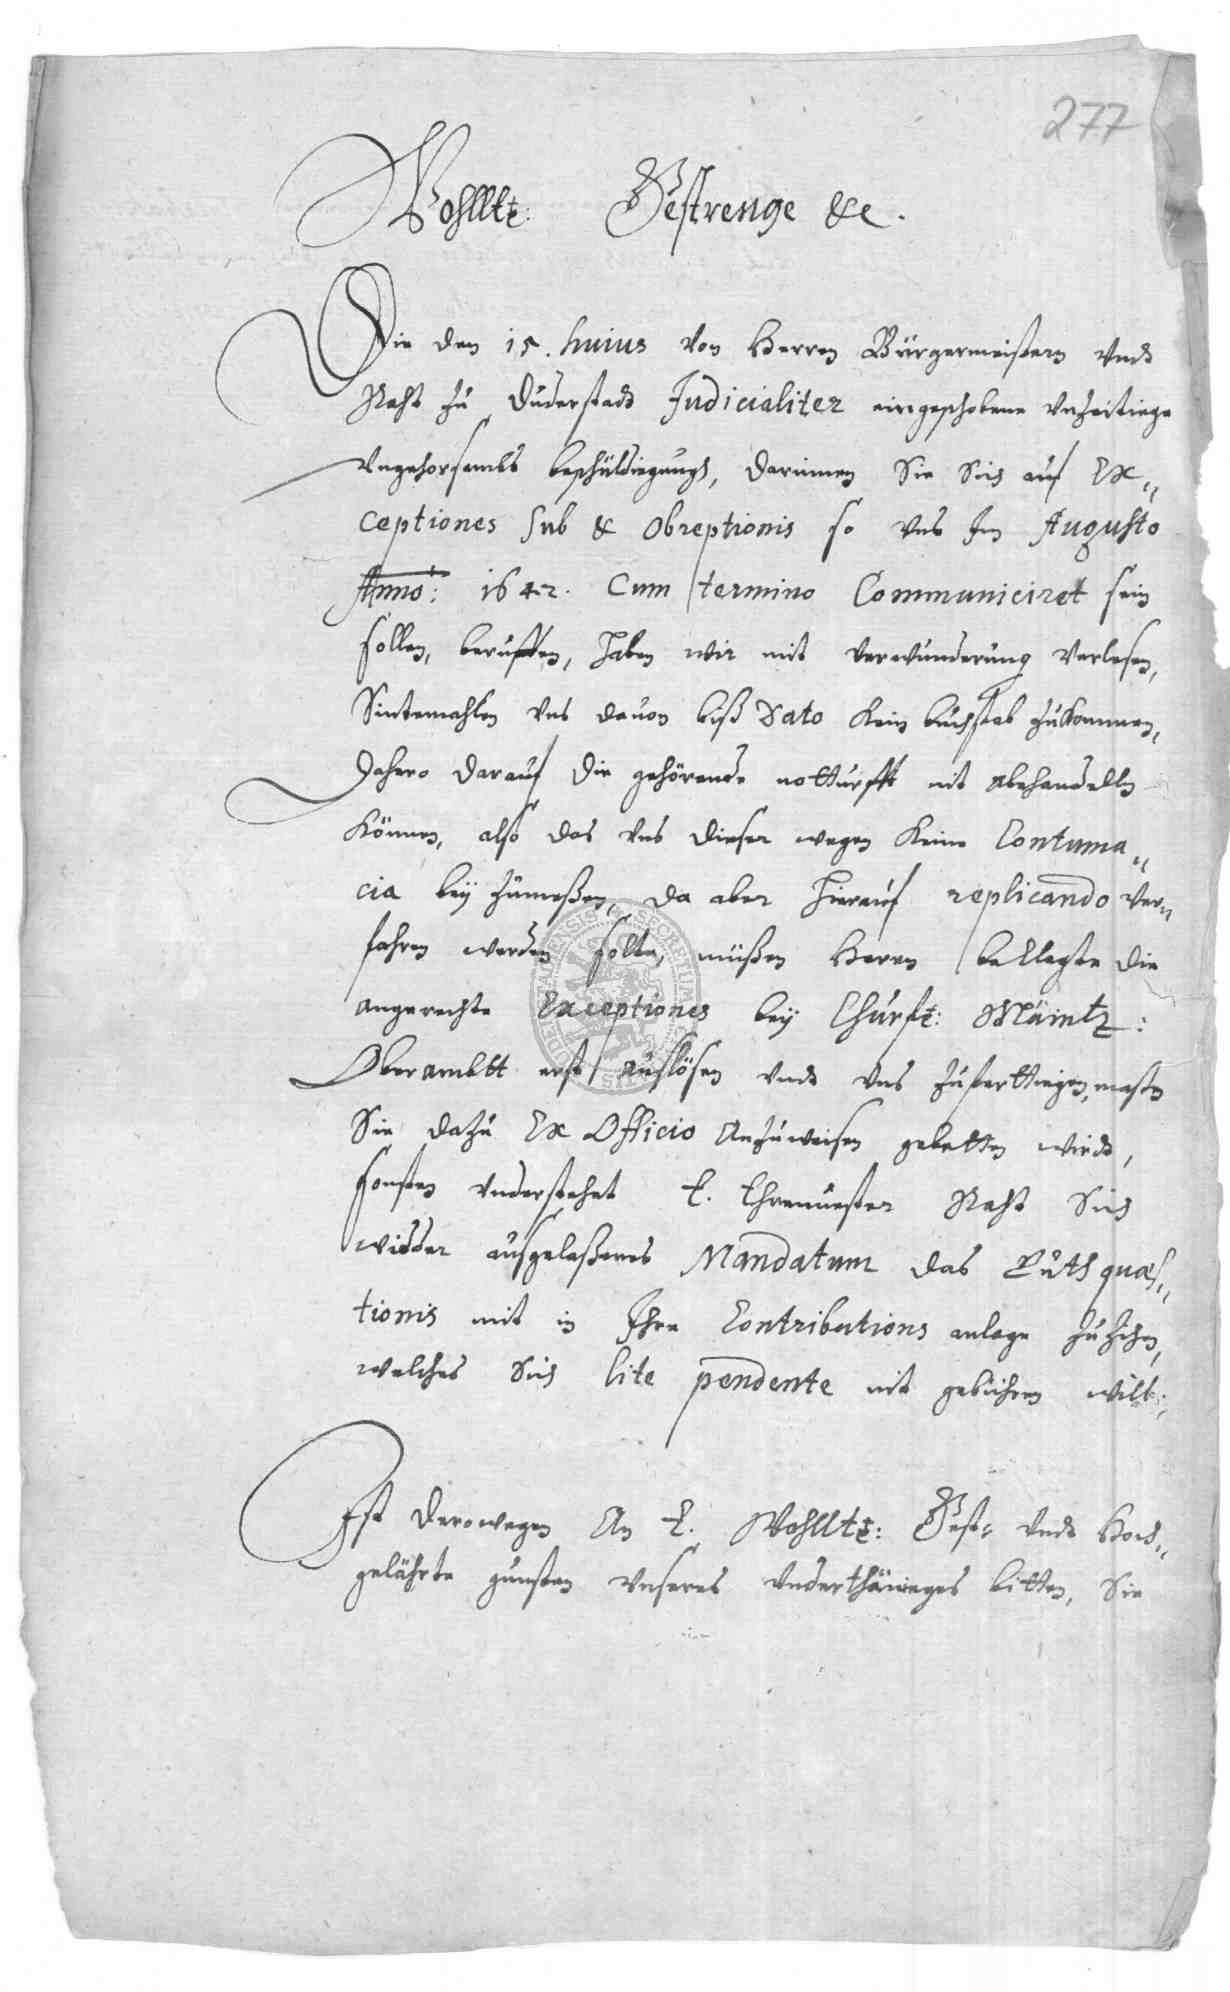 277
Wohlltt: Gestrenge &c.
Die den 15. huius von Herren Bürgermeistern vndt
Raht zu Duderstadt Judicialiter eingeschobene vnzeitiege
vngehorsambs beschüldiegungh, darinnen Sie Sich auf Ex„
ceptiones Sub & Obreptionis so vns Im Augusto
Anno: 1642. Cum termino Communiciret sein
sollen, beruffen, haben wir mit verwunderung verlesen,
Sintemahlen vns dauon biß Dato kein buchstab zukommen,
Dahero darauf die gehörende notturfft nit abehandelln
können, also das vns dieser wegen keine Contuma„
cia beÿ zümeßen, da aber hierauf replicando ver„
fahren werden solte, müßen Herren beklagte die
angerechte Exceptiones beÿ Churft: Mäintz:
Oberambtt erst auslösen vndt vns zufertiegen, maßen
Sie dazu Ex Officio Anzuweisen gebetten wirdt,
sonsten vnderstehet E. Ehrenuester Raht Sich
widder ausgelaßenes Mandatum das Guth quæs„
tionis mit in Ihre Contributions anlage zuzihen,
welches Sich lite pendente nit gebühren will:
Ist derowegen An E. Wohlltt: Gest: vndt Hoch„
gelährte gunsten vnseres vnderthänieges bitten, Sie